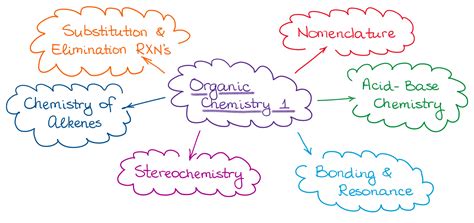 Substitution &
Elimination RXN's
Nomenclature
Chemistry of
Alkenes
Organic
Chemistry 1
Acid-Base
Chemistry
Stereochemistry
Bonding &
Resonance